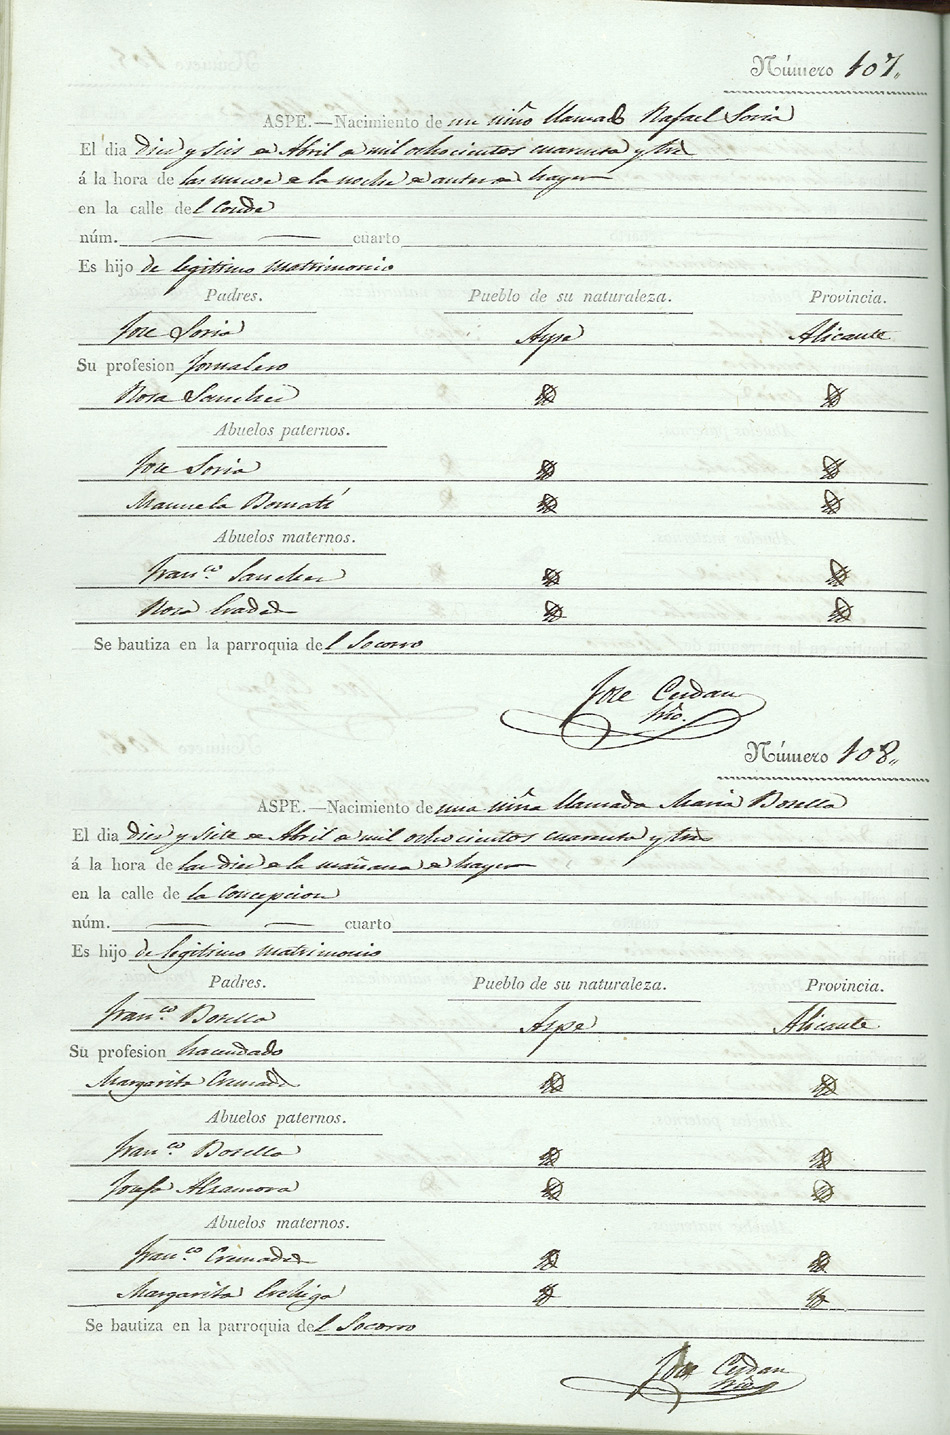 Número 107.
ASPE.—Nacimiento de un niño llamado Rafael Soria
El dia diez y seis de Abril de mil ochocientos cuarenta y tres
á la hora de las nueve de la noche de antes de hayer
en la calle del Conde
núm. — — cuarto
Es hijo de legitimo matrimonio
Padres. Pueblo de su naturaleza. Provincia.
Jose Soria Aspe Alicante
Su profesion Jornalero
Rosa Sanchez
Abuelos paternos.
Jose Soria
Manuela Bomatí
Abuelos maternos.
Fran.co Sanchez
Rosa
Se bautiza en la parroquia del Socorro
Jose Cerdan
Número 108.
ASPE.—Nacimiento de una niña llamada Maria Botella
El dia diez y siete de Abril de mil ochocientos cuarenta y tres
á la hora de las diez de la mañana de hayer
en la calle de la Concepcion
núm. — — cuarto
Es hijo de legitimo matrimonio
Padres. Pueblo de su naturaleza. Provincia.
Fran.co Botella Aspe Alicante
Su profesion hacendado
Margarita Cremades
Abuelos paternos.
Fran.co Botella
Josefa Alzamora
Abuelos maternos.
Fran.co Cremades
Margarita
Se bautiza en la parroquia del Socorro
Jose Cerdan